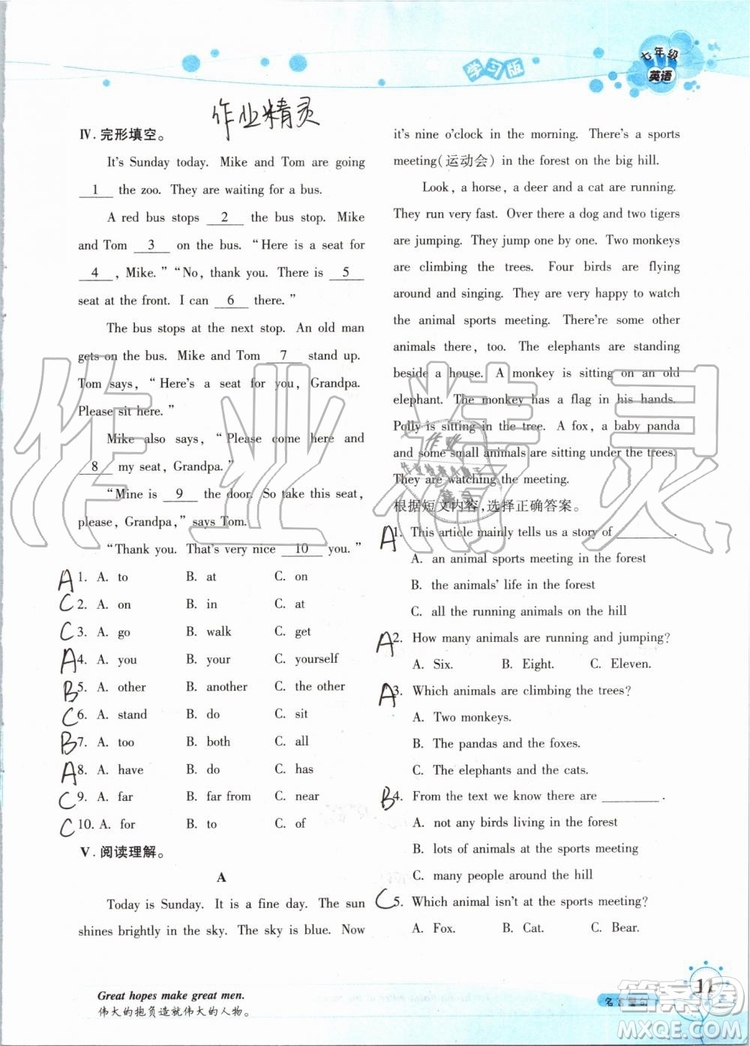 学习版
七年级
英语
作业精灵
Ⅳ. 完形填空。
It's Sunday today. Mike and Tom are going
1 the zoo. They are waiting for a bus.
A red bus stops 2 the bus stop. Mike
and Tom 3 on the bus. "Here is a seat for
4, Mike." "No, thank you. There is 5
seat at the front. I can 6 there."
The bus stops at the next stop. An old man
gets on the bus. Mike and Tom 7 stand up.
Tom says, "Here's a seat for you, Grandpa.
Please sit here."
Mike also says, "Please come here and
8 my seat, Grandpa."
"Mine is 9 the door. So take this seat,
please, Grandpa," says Tom.
"Thank you. That's very nice 10 you."
A 1. A. to B. at C. on
C 2. A. on B. in C. at
C 3. A. go B. walk C. get
A 4. A. you B. your C. yourself
B 5. A. other B. another C. the other
C 6. A. stand B. do C. sit
B 7. A. too B. both C. all
A 8. A. have B. do C. has
C 9. A. far B. far from C. near
C 10. A. for B. to C. of
Ⅴ. 阅读理解。
A
Today is Sunday. It is a fine day. The sun
shines brightly in the sky. The sky is blue. Now
it's nine o'clock in the morning. There's a sports
meeting(运动会) in the forest on the big hill.
Look, a horse, a deer and a cat are running.
They run very fast. Over there a dog and two tigers
are jumping. They jump one by one. Two monkeys
are climbing the trees. Four birds are flying
around and singing. They are very happy to watch
the animal sports meeting. There are some other
animals there, too. The elephants are standing
beside a house. A monkey is sitting on an old
elephant. The monkey has a flag in his hands.
Polly is sitting in the tree. A fox, a baby panda
and some small animals are sitting under the tree.
They are watching the meeting.
根据短文内容,选择正确答案。
A 1. This article mainly tells us a story of ________.
A. an animal sports meeting in the forest
B. the animals' life in the forest
C. all the running animals on the hill
A 2. How many animals are running and jumping?
A. Six. B. Eight. C. Eleven.
A 3. Which animals are climbing the trees?
A. Two monkeys.
B. The pandas and the foxes.
C. The elephants and the cats.
B 4. From the text we know there are ________.
A. not any birds living in the forest
B. lots of animals at the sports meeting
C. many people around the hill
C 5. Which animal isn't at the sports meeting?
A. Fox. B. Cat. C. Bear.
Great hopes make great men.
伟大的抱负造就伟大的人物。
11
作业精灵
答案圈
MXQE.COM